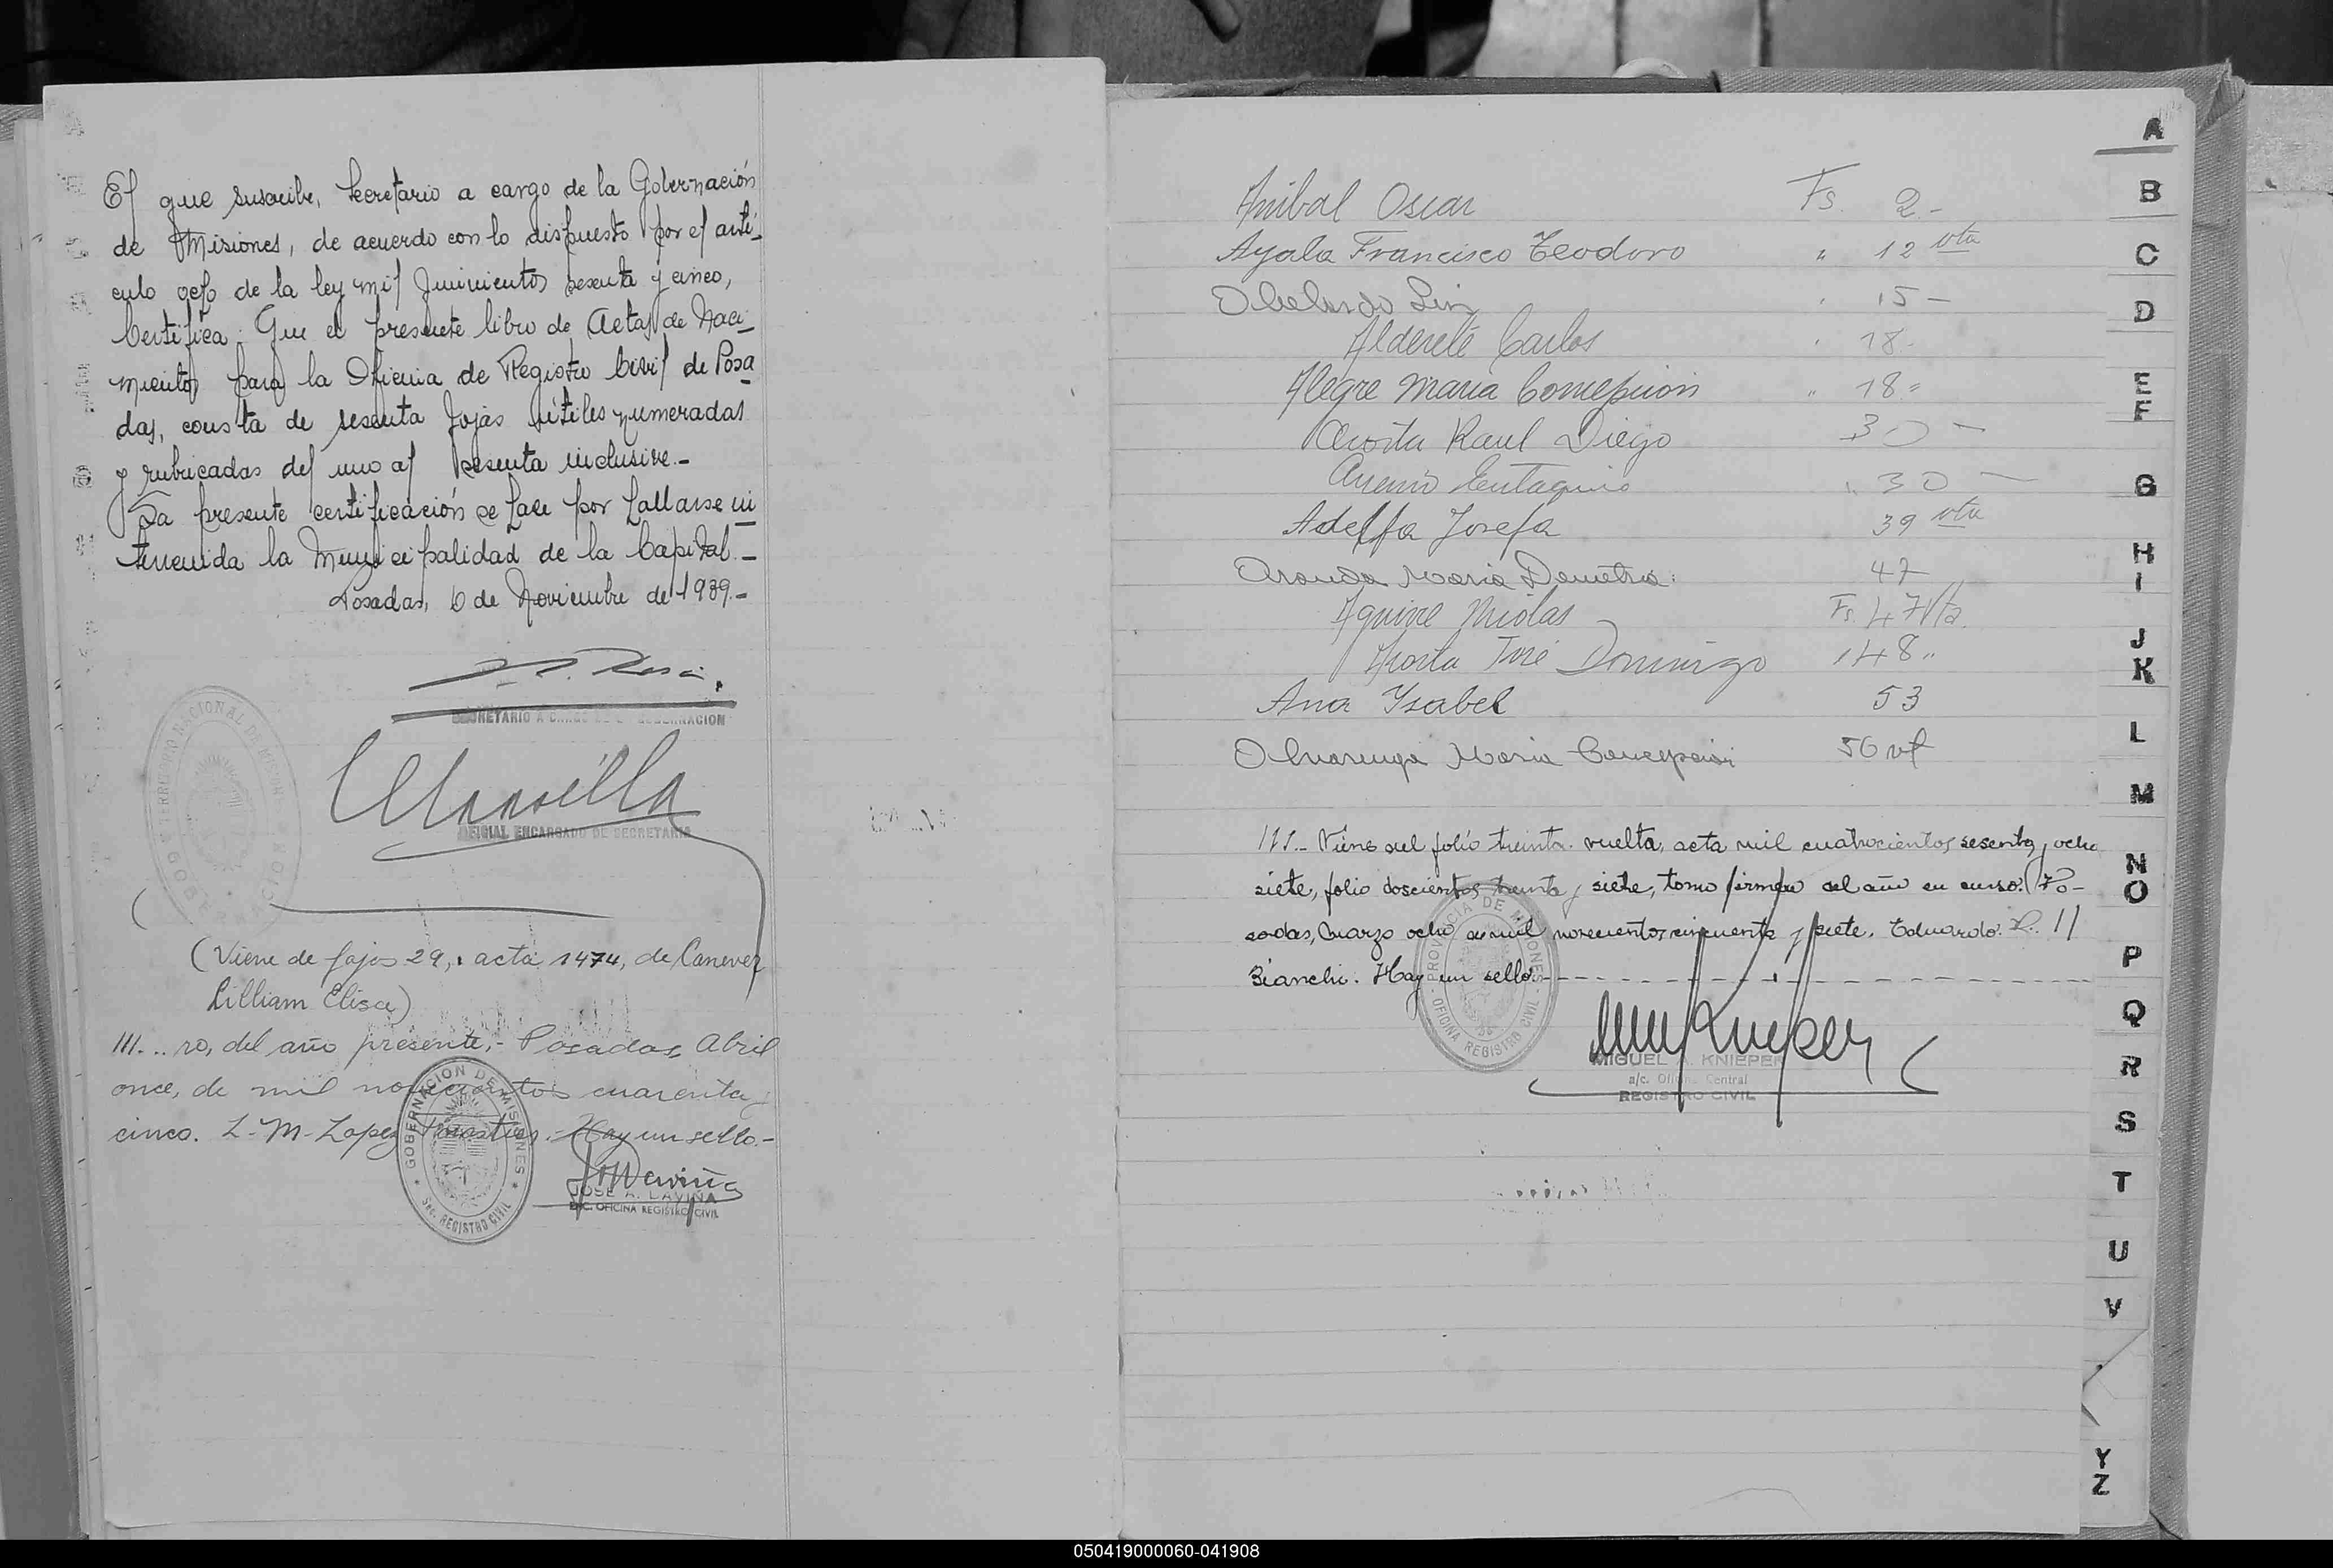 El que suscribe, Secretario a cargo de la Gobernación
de Misiones, de acuerdo con lo dispuesto por el artí-
culo ocho de la ley mil quinientos sesenta y cinco,
Certifica: Que el presente libro de Actas de Naci-
mientos para la Oficina de Registro Civil de Posa-
das, consta de sesenta fojas útiles numeradas
y rubricadas del uno al sesenta inclusive.-
La presente certificación se hace por hallarse in-
tervenida la Municipalidad de la Capital.-
Posadas, 6 de Noviembre de 1939.-
SECRETARIO A CARGO DE LA GOBERNACION
OFICIAL ENCARGADO DE SECRETARIA
(Viene de fojas 29, acta 1474, de Canever
Lilliam Elisa)
III... ro, del año presente,- Posadas, Abril
once, de mil novecientos cuarenta y
cinco. L. M. Lopez . Hay un sello.-
GOBERNACION DE MISIONES
Sec. REGISTRO CIVIL
JOSE A. LAVIÑA
E/C. OFICINA REGISTRO CIVIL
Anibal Oscar Fs. 2-
Ayala Francisco Teodoro " 12 vta
Abelardo Luis 15-
Alderete Carlos 18-
Alegre Maria Concepcion " 18"
Acosta Raul Diego 30-
Eustaquio 30-
Adelfa Josefa 39 vta
Aranda Maria Demetria 47
Aguirre Nicolas Fs. 47 Vta.
Acosta José Domingo 48"
Ana Ysabel 53
Alvarenga Maria Concepcion 56 vt
III.- Viene del folio treinta vuelta, acta mil cuatrocientos sesenta y ocho
siete, folio doscientos treinta y siete, tomo primero del año en curso. Po-
sadas, Marzo ocho de mil novecientos cincuenta y siete. Eduardo R.
Bianchi. Hay un sello.
PROVINCIA DE MISIONES
OFICINA REGISTRO CIVIL
MIGUEL A. KNIEPER
a/c. Oficina Central
REGISTRO CIVIL
A
B
C
D
E
F
G
H
I
J
K
L
M
N
O
P
Q
R
S
T
U
V
Y
Z
050419000060-041908